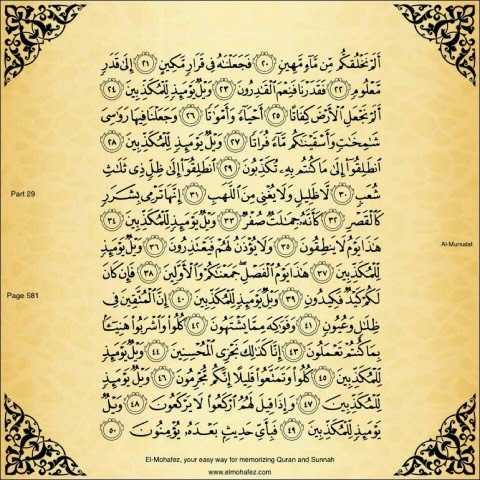 أَلَمْ نَخْلُقكُّم مِّن مَّآءٍ مَّهِينٍ ٢٠ فَجَعَلْنَٰهُ فِى قَرَارٍ مَّكِينٍ ٢١ إِلَىٰ قَدَرٍ
مَّعْلُومٍ ٢٢ فَقَدَرْنَا فَنِعْمَ ٱلْقَٰدِرُونَ ٢٣ وَيْلٌ يَوْمَئِذٍ لِّلْمُكَذِّبِينَ ٢٤
أَلَمْ نَجْعَلِ ٱلْأَرْضَ كِفَاتًا ٢٥ أَحْيَآءً وَأَمْوَٰتًا ٢٦ وَجَعَلْنَا فِيهَا رَوَٰسِىَ
شَٰمِخَٰتٍ وَأَسْقَيْنَٰكُم مَّآءً فُرَاتًا ٢٧ وَيْلٌ يَوْمَئِذٍ لِّلْمُكَذِّبِينَ ٢٨
ٱنطَلِقُوٓا۟ إِلَىٰ مَا كُنتُم بِهِۦ تُكَذِّبُونَ ٢٩ ٱنطَلِقُوٓا۟ إِلَىٰ ظِلٍّ ذِى ثَلَٰثِ
شُعَبٍ ٣٠ لَّا ظَلِيلٍ وَلَا يُغْنِى مِنَ ٱللَّهَبِ ٣١ إِنَّهَا تَرْمِى بِشَرَرٍ
كَٱلْقَصْرِ ٣٢ كَأَنَّهُۥ جِمَٰلَتٌ صُفْرٌ ٣٣ وَيْلٌ يَوْمَئِذٍ لِّلْمُكَذِّبِينَ ٣٤
هَٰذَا يَوْمُ لَا يَنطِقُونَ ٣٥ وَلَا يُؤْذَنُ لَهُمْ فَيَعْتَذِرُونَ ٣٦ وَيْلٌ يَوْمَئِذٍ
لِّلْمُكَذِّبِينَ ٣٧ هَٰذَا يَوْمُ ٱلْفَصْلِ ۖ جَمَعْنَٰكُمْ وَٱلْأَوَّلِينَ ٣٨ فَإِن كَانَ
لَكُمْ كَيْدٌ فَكِيدُونِ ٣٩ وَيْلٌ يَوْمَئِذٍ لِّلْمُكَذِّبِينَ ٤٠ إِنَّ ٱلْمُتَّقِينَ فِى
ظِلَٰلٍ وَعُيُونٍ ٤١ وَفَوَٰكِهَ مِمَّا يَشْتَهُونَ ٤٢ كُلُوا۟ وَٱشْرَبُوا۟ هَنِيٓـًٔۢا
بِمَا كُنتُمْ تَعْمَلُونَ ٤٣ إِنَّا كَذَٰلِكَ نَجْزِى ٱلْمُحْسِنِينَ ٤٤ وَيْلٌ يَوْمَئِذٍ
لِّلْمُكَذِّبِينَ ٤٥ كُلُوا۟ وَتَمَتَّعُوا۟ قَلِيلًا إِنَّكُم مُّجْرِمُونَ ٤٦ وَيْلٌ يَوْمَئِذٍ
لِّلْمُكَذِّبِينَ ٤٧ وَإِذَا قِيلَ لَهُمُ ٱرْكَعُوا۟ لَا يَرْكَعُونَ ٤٨ وَيْلٌ
يَوْمَئِذٍ لِّلْمُكَذِّبِينَ ٤٩ فَبِأَىِّ حَدِيثٍۭ بَعْدَهُۥ يُؤْمِنُونَ ٥٠
Part 29
Al-Mursalat
Page 581
El-Mohafez, your easy way for memorizing Quran and Sunnah
www.elmohafez.com